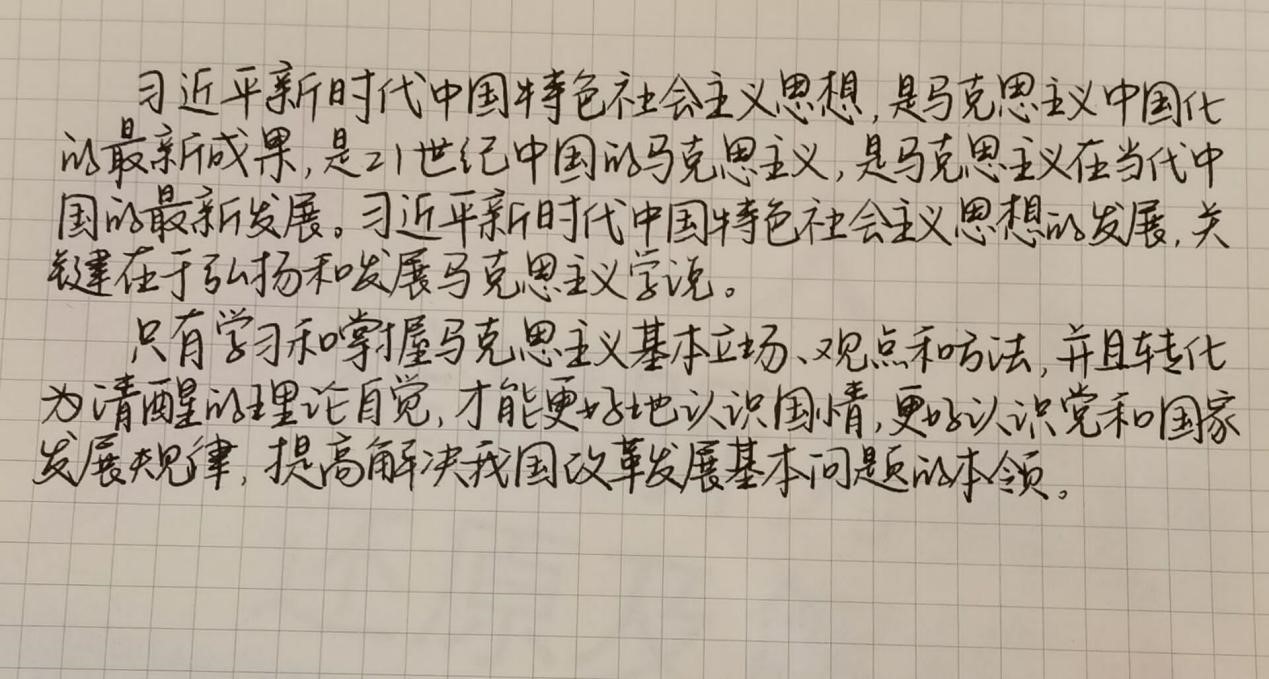 习近平新时代中国特色社会主义思想,是马克思主义中国化
的最新成果,是21世纪中国的马克思主义,是马克思主义在当代中
国的最新发展。习近平新时代中国特色社会主义思想的发展,关
键在于弘扬和发展马克思主义学说。
只有学习和掌握马克思主义基本立场、观点和方法,并且转化
为清醒的理论自觉,才能更好地认识国情,更好认识党和国家
发展规律,提高解决我国改革发展基本问题的本领。